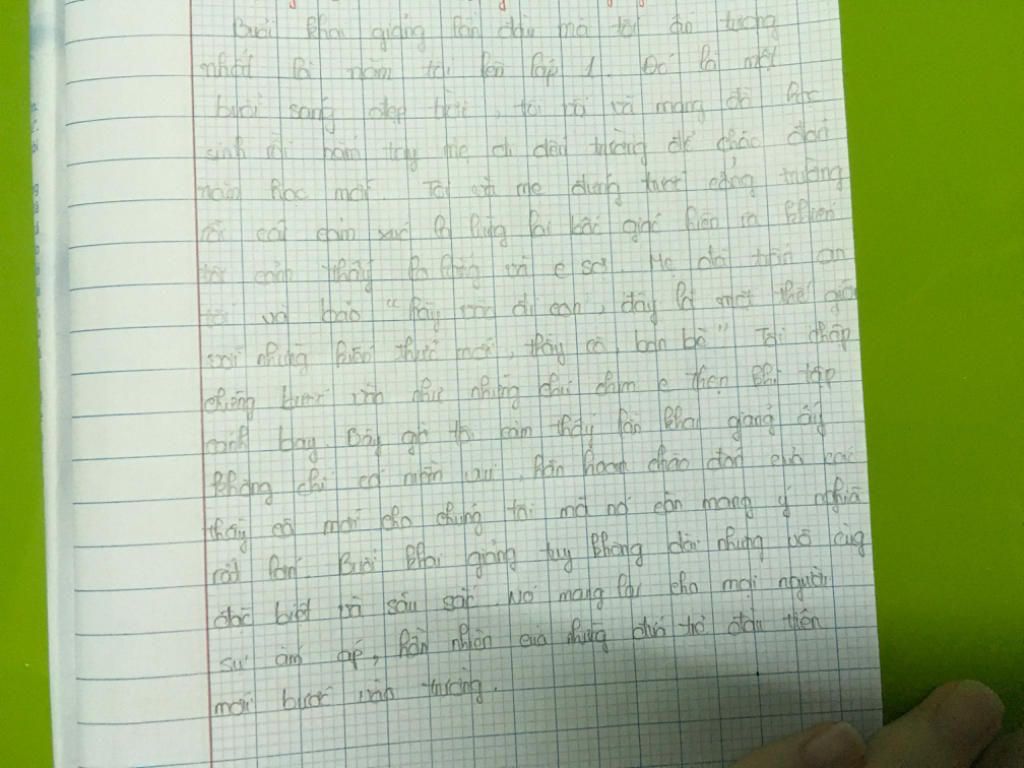 Buổi khai giảng lần đầu mà tôi ấn tượng
nhất là năm tôi lên lớp 1. Đó là một
buổi sáng đẹp trời, tôi và mang đồ học
sinh rồi nắm tay mẹ đi đến trường để chào đón
năm học mới. Tôi và mẹ đứng trước cổng trường
rồi cái cảm xúc lạ lùng lại bất giác hiện ra khiến
tôi cảm thấy lạ lẫm và e sợ. Mẹ trấn an
tôi và bảo "hãy vào đi con, đây là một thế giới
với những kiến thức mới, thầy cô, bạn bè" Tôi chập
chững bước vào như những chú chim e thẹn khi tập
cánh bay. Bây giờ tôi cảm thấy lần khai giảng ấy
không chỉ có niềm vui, hân hoan chào đón của các
thầy cô mới cho chúng tôi mà nó còn mang ý nghĩa
rất lớn. Buổi khai giảng tuy không dài nhưng vô cùng
đặc biệt và sâu sắc. Nó mang lại cho mọi người
sự ấm áp, hồn nhiên của những đứa trẻ đầu tiên
mới bước vào trường.